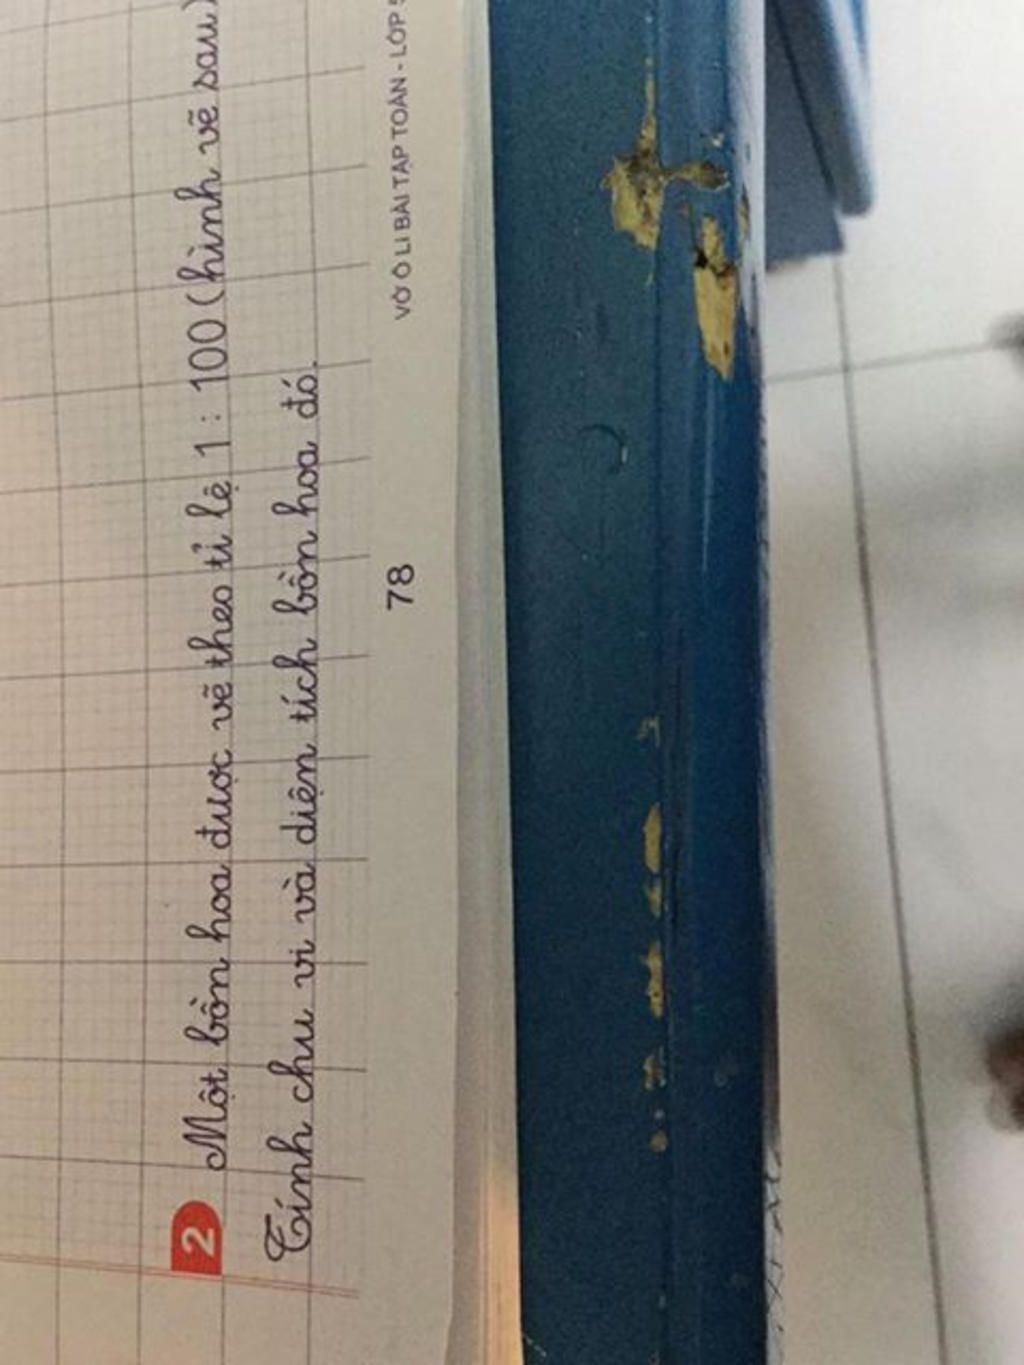 2 Một bồn hoa được vẽ theo tỉ lệ 1 : 100 (hình vẽ sau)
Tính chu vi và diện tích bồn hoa đó.
78
VỞ Ô LI BÀI TẬP TOÁN - LỚP 5